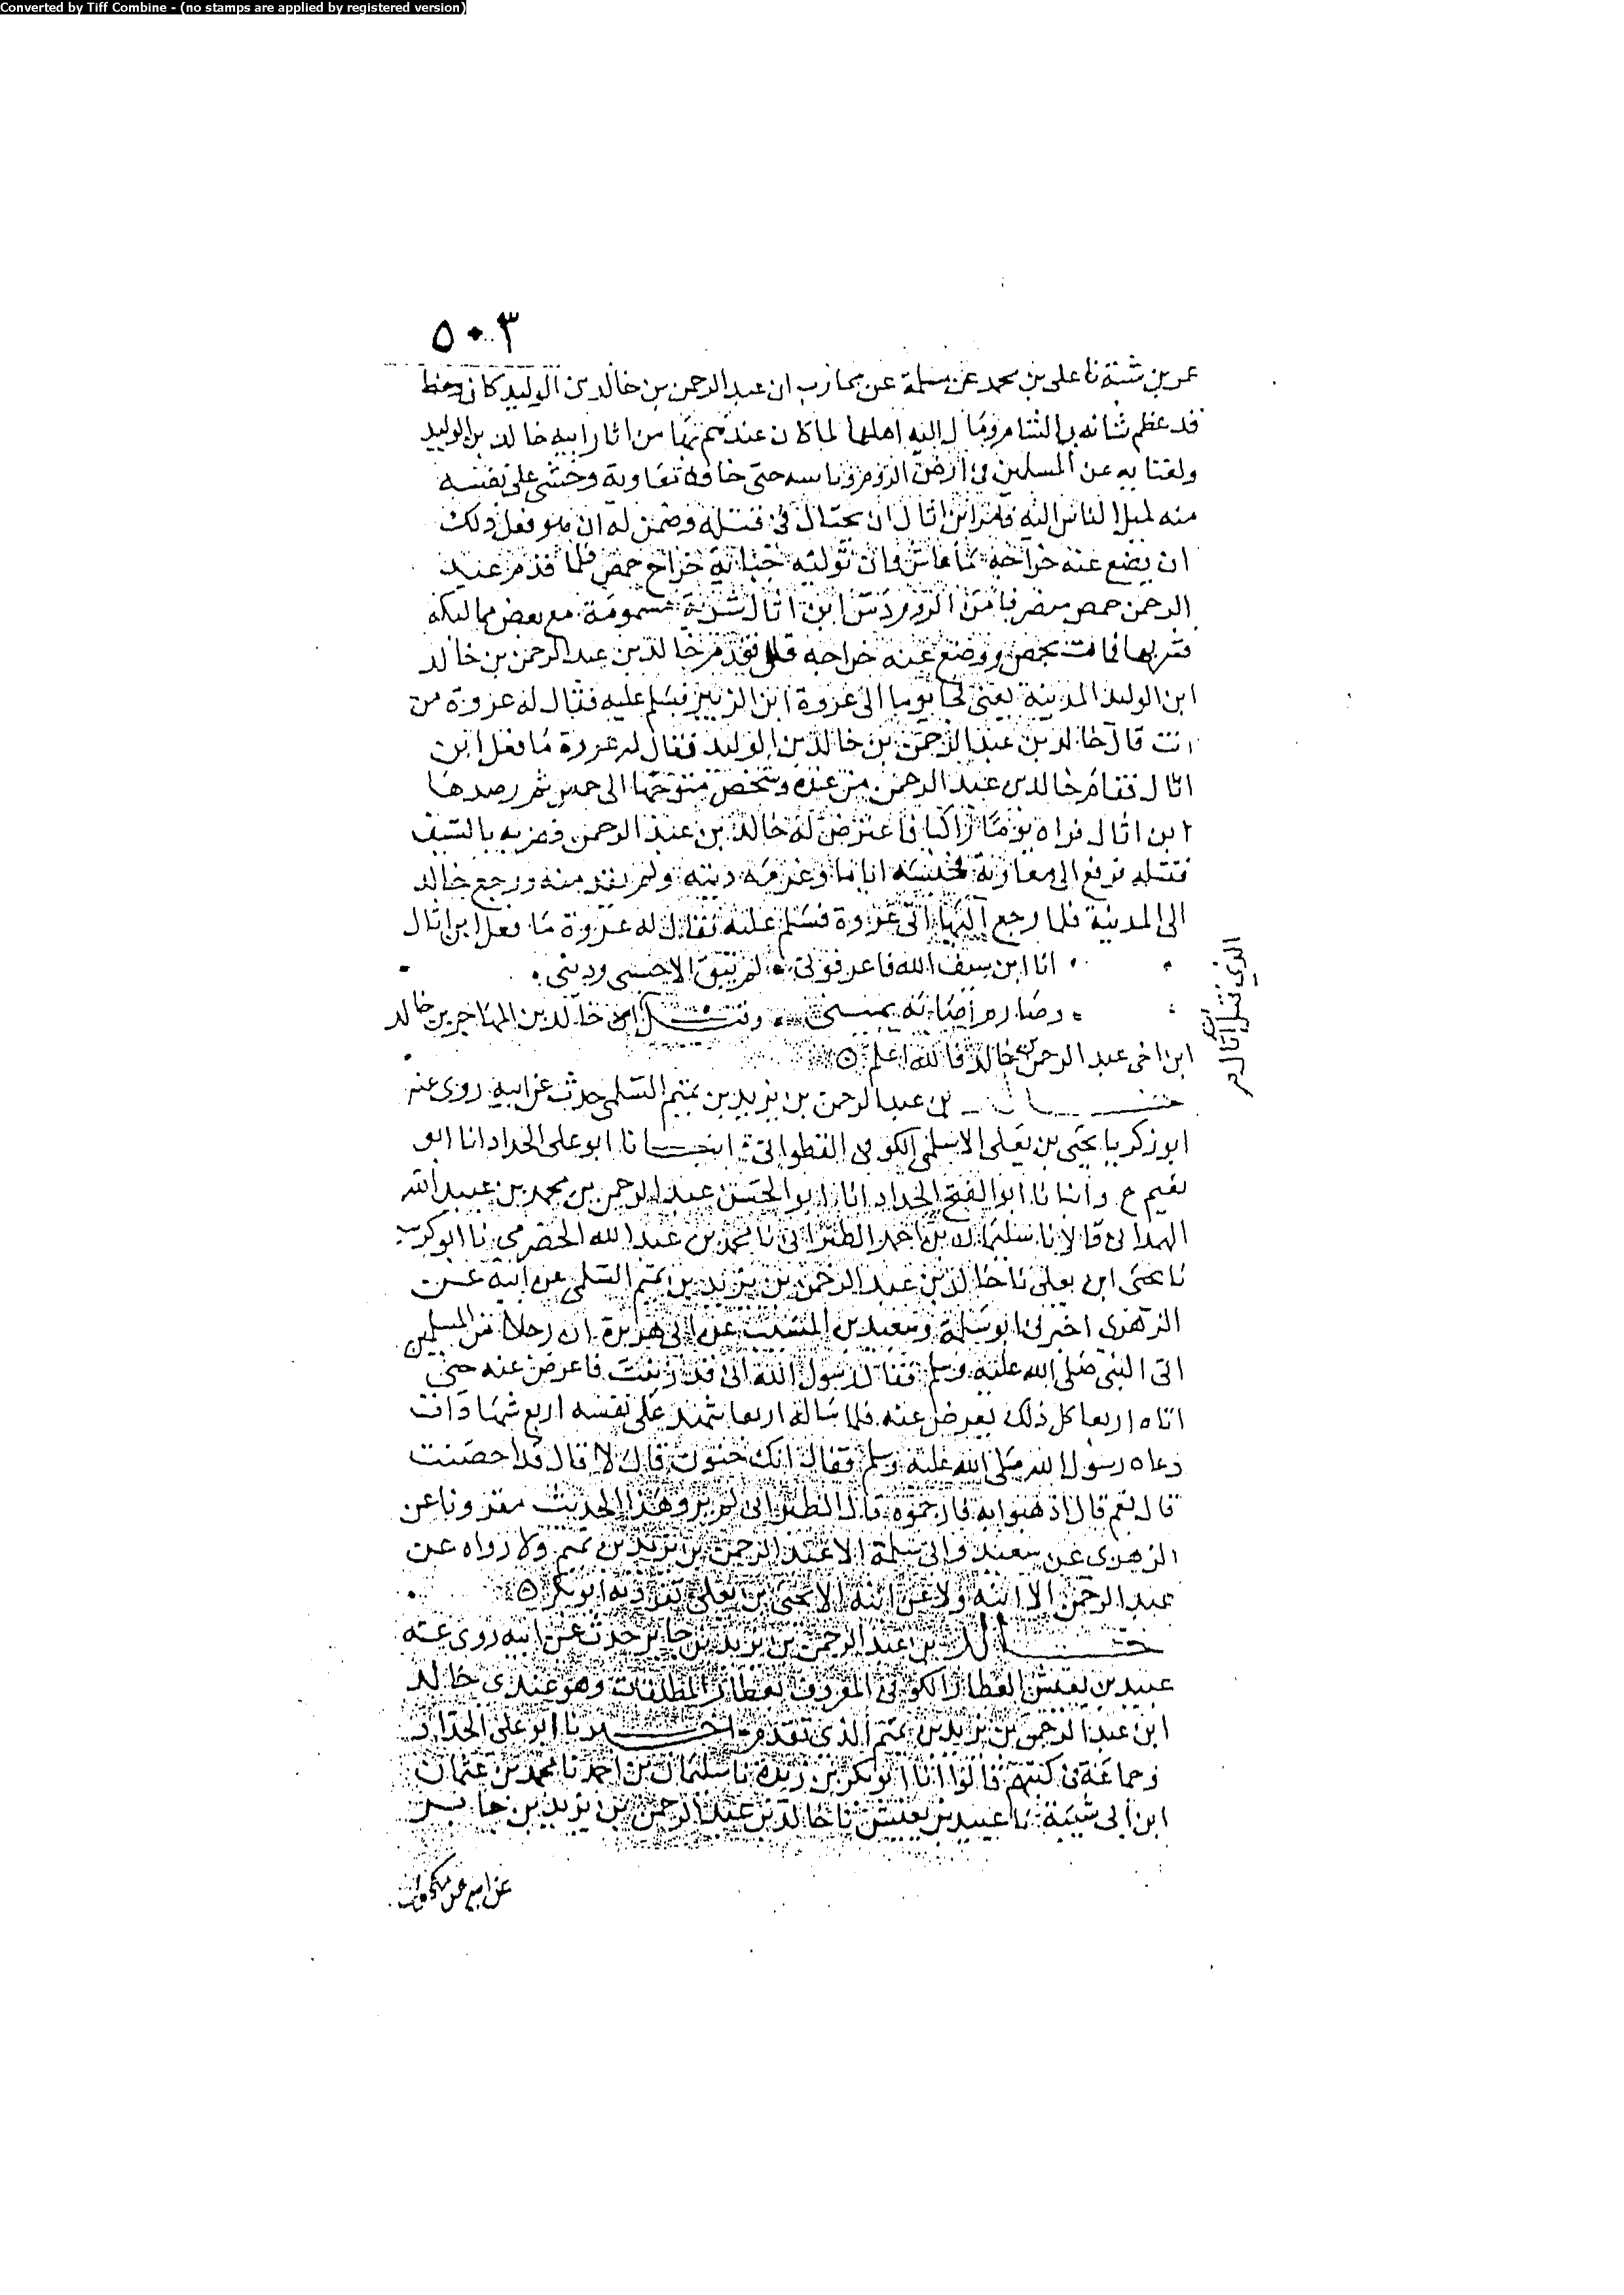 Converted by Tiff Combine - (no stamps are applied by registered version)
٥٠٣
عمر بن شبة نا على بن محمد عن مسلمة عن محارب ان عبد الرحمن بن خالد بن الوليد كان
قد عظم شانه بالشام ومال اليه اهلها لما كان عندهم بها من اثار ابيه خالد بن الوليد
ولغنايه عن المسلمين فى ارض الروم وباسه حتى خافه معاوية وخشى على نفسه
منه لميل الناس اليه فامر ابن اثال ان يحتال فى قتله وضمن له ان هو فعل ذلك
ان يضع عنه خراجه ما عاش وان توليه جباية خراج حمص فلما قدم عبد
الرحمن حمص منصرفا من الروم دس ابن اثال شربة مسمومة مع بعض مماليكه
فشربها فمات بحمص ووضع عنه خراجه فلما تقدم خالد بن عبد الرحمن بن خالد
ابن الوليد المدينة يعنى فجا يوما الى عروة ابن الزبير فسلم عليه فقال له عروة من
انت قال خالد بن عبد الرحمن بن خالد بن الوليد فقال له عروة ما فعل ابن
اثال فقام خالد بن عبد الرحمن من عنده وشخص متوجها الى حمص ثم رصد ها
ابن اثال فراه يوما راكبا فاعترض له خالد بن عبد الرحمن فضربه بالسيف
فقتله فرفع الى معاوية فحبسه اياما وغرمه ديته ولم يقد منه ورجع خالد
الى المدينة فلما رجع اليها اتى عروة فسلم عليه فقال له عروة ما فعل ابن اثال
انا ابن سيف الله فاعرفونى لم يبق الا حسبى ودينى
وصارم اصابه يمينى وقيل ان خالد بن المهاجر بن خالد
ابن اخى عبد الرحمن بن خالد فالله اعلم
الذي قتل ابن اثال
خالد بن عبد الرحمن بن يزيد بن تميم السلمى حدث عن ابيه روى عنه
ابو زكريا يحيى بن يعلى الاسلمى الكوفى القطوانى انبانا ابو على الحداد انا ابو
نعيم ح وانبانا ابو الفتح الحداد انا ابو الحسن عبد الرحمن بن محمد بن عبيد الله
الهمدانى قالا نا سليمان بن احمد الطبرانى نا محمد بن عبد الله الحضرمي نا ابو كريب
نا يحيى ابن يعلى نا خالد بن عبد الرحمن بن يزيد بن تميم السلمى عن ابيه عن
الزهرى اخبرنى ابو سلمة وسعيد بن المسيب عن ابى هريرة ان رجلا من المسلمين
اتى النبى صلى الله عليه وسلم فقال رسول الله انى قد زنيت فاعرض عنه حتى
اتاه اربعا كل ذلك يعرض عنه فلما ساله اربعا شهد على نفسه اربع شهادات
دعاه رسول الله صلى الله عليه وسلم فقال ابك جنون قال لا قال قد احصنت
قال نعم قال اذهبوا به فارجموه قال الطبرانى لم يرو هذا الحديث مقرونا عن
الزهرى عن سعيد وابى سلمة الا عبد الرحمن بن يزيد بن تميم ولا رواه عن
عبد الرحمن الا ابنه ولا عن ابنه الا يحيى بن يعلى تفرد به ابو كريب
خالد بن عبد الرحمن بن يزيد بن جابر حدث عن ابيه روى عنه
عبيد بن يعيش العطار الكوفى المعروف بعطار المطلقات وهو عندى خالد
ابن عبد الرحمن بن يزيد بن تميم الذى تقدم اخبرنا ابو على الحداد
وجماعة فى كتبهم قالوا انا ابو بكر بن ريذة نا سليمان بن احمد نا محمد بن عثمان
ابن ابى شيبة نا عبيد بن يعيش نا خالد بن عبد الرحمن بن يزيد بن جابر
عن ابيه عن مكحول